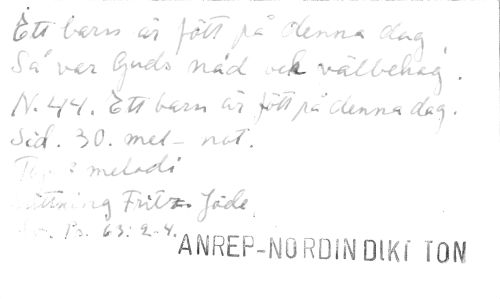 Ett barn är fött på denna dag
Så var Guds nåd och välbehag.
N. 44. Ett barn är fött på denna dag.
Sid. 30. mel- not.
melodi
Fritz Jöde
Ps. 63: 2-4.
ANREP-NORDIN DIKT TON